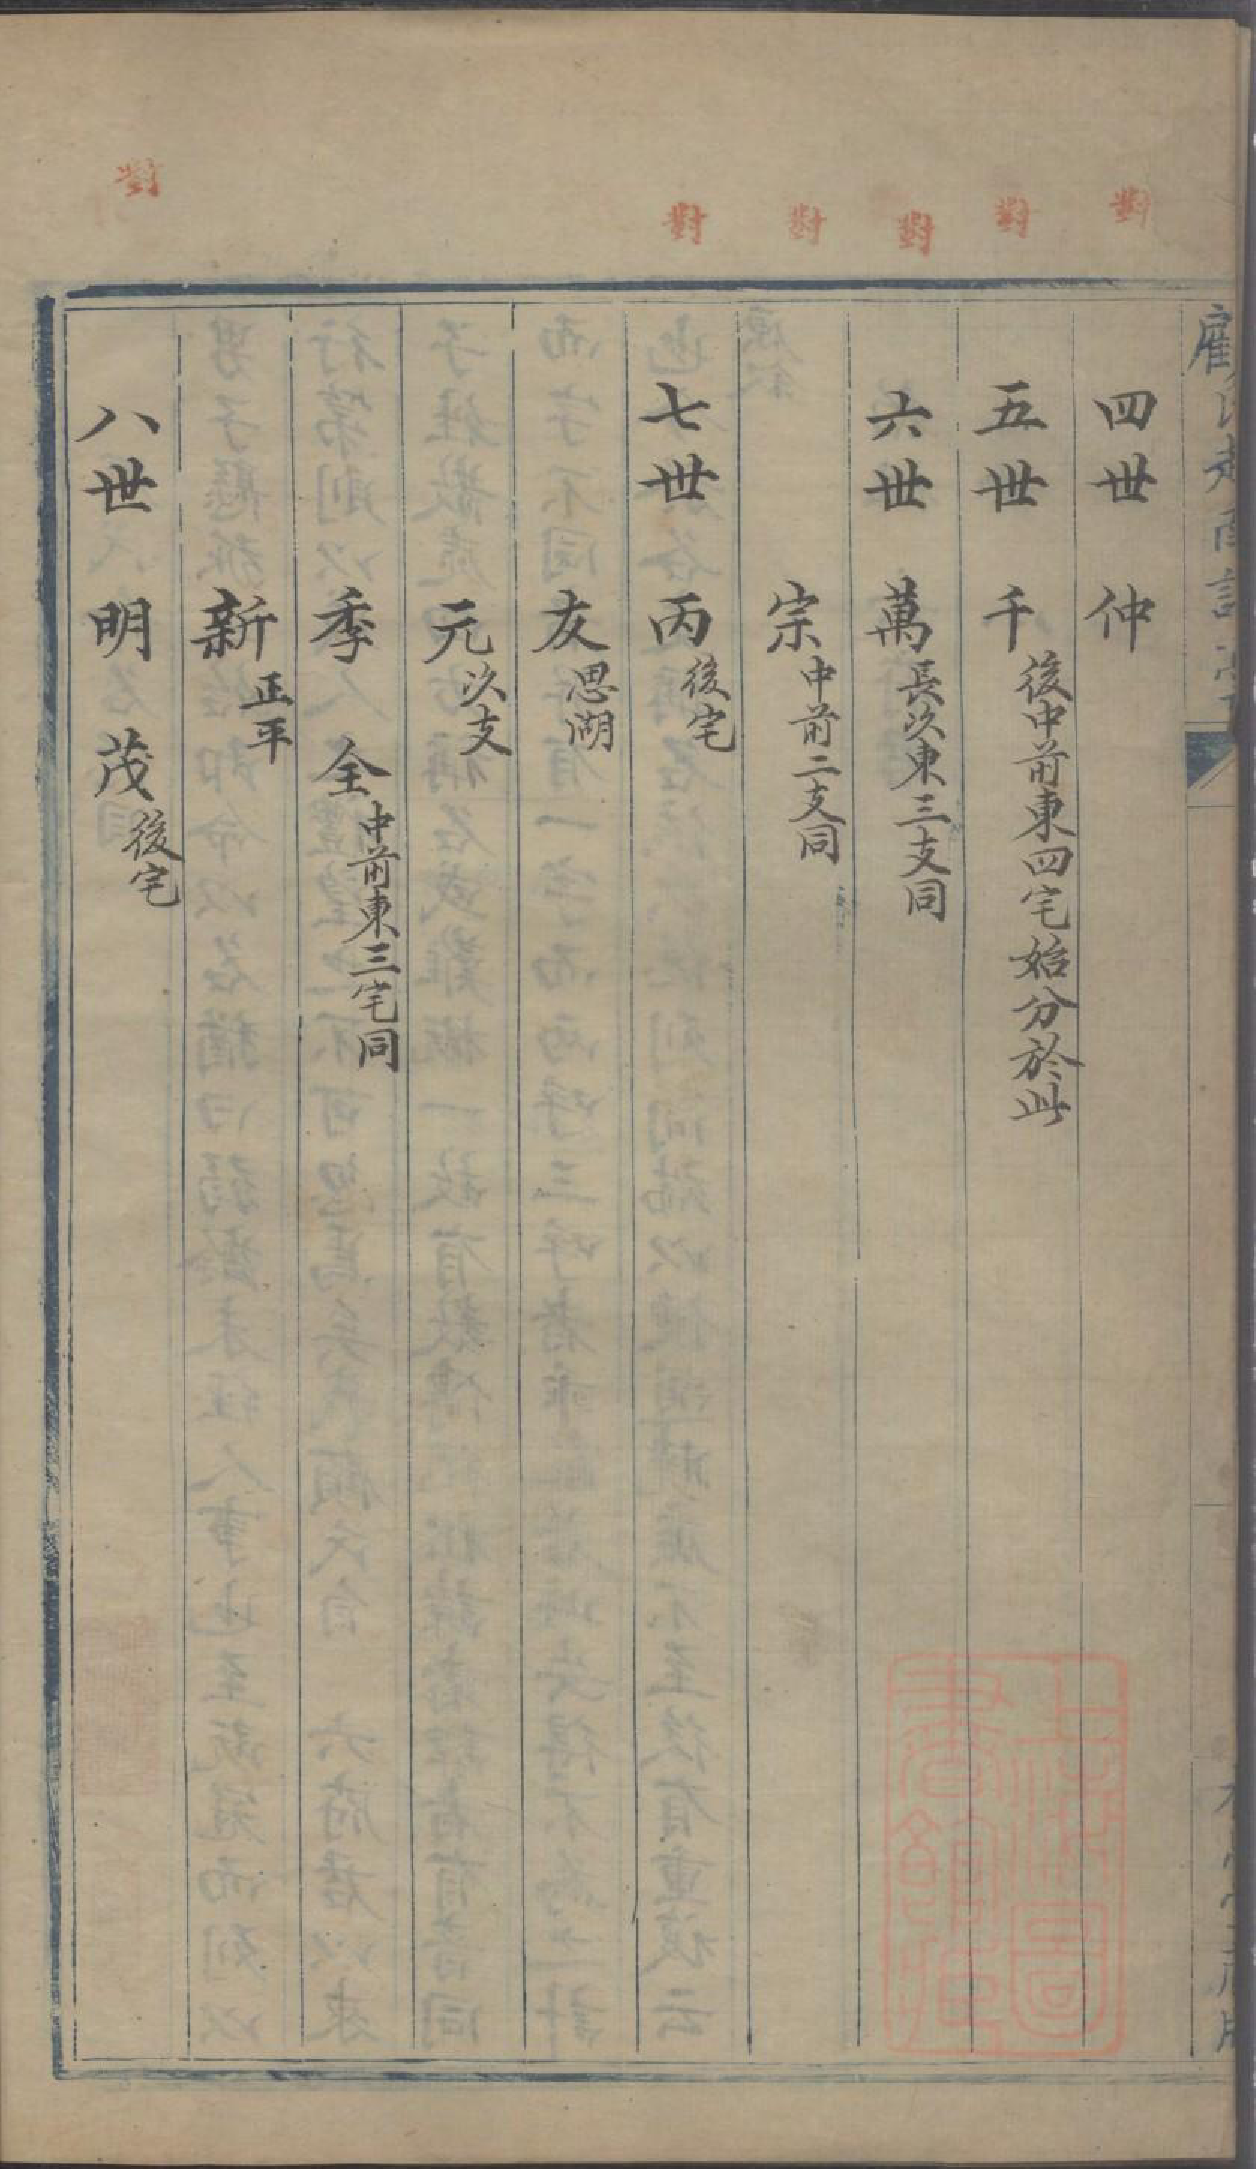 對
對
對
對
對
對
四世 仲
五世 千後中前東四宅始分於此
六世 萬長次東三支同
宗中前二支同
七世 丙後宅
友思湖
元次支
季 全中前東三宅同
新正平
八世 明 茂後宅
上海圖
書館藏